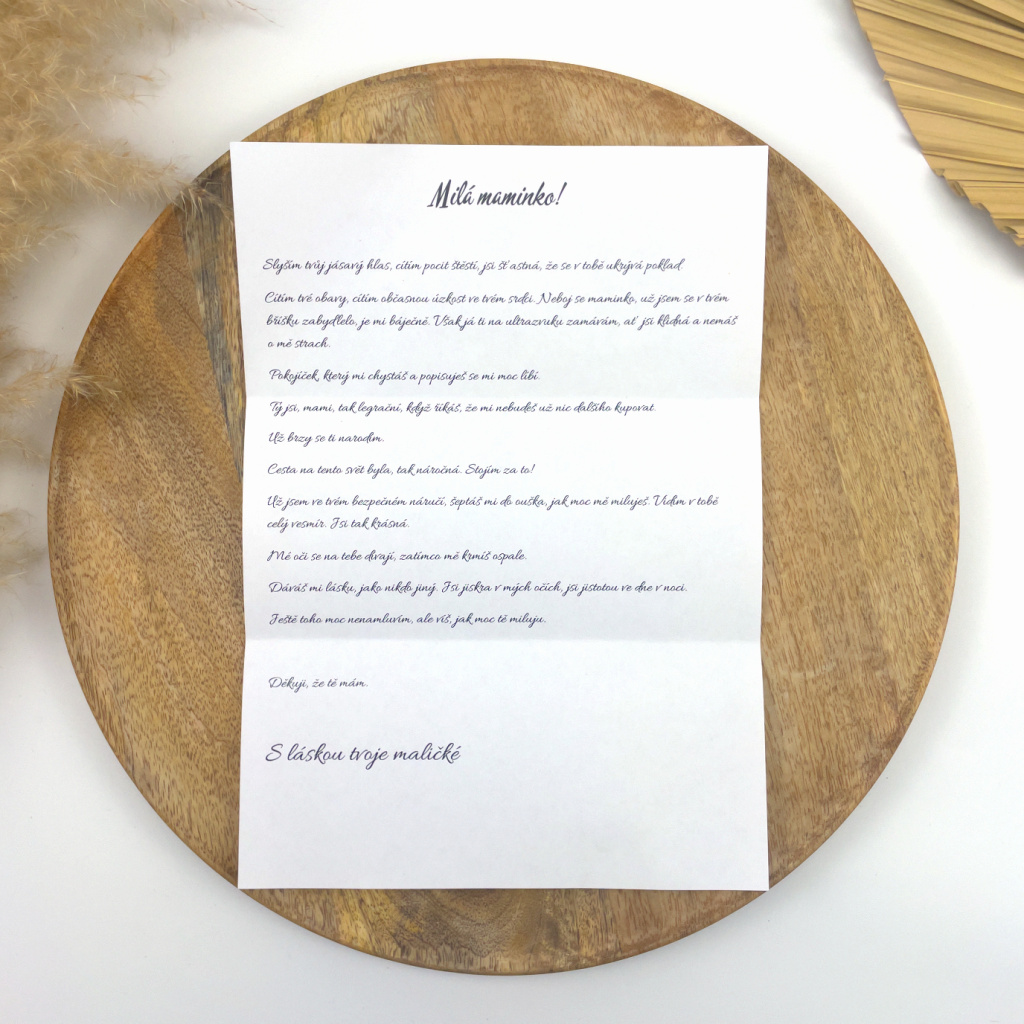 Milá maminko!
Slyším tvůj jásavý hlas, cítím pocit štěstí, jsi šťastná, že se v tobě ukrývá poklad.
Cítím tvé obavy, cítím občasnou úzkost ve tvém srdci. Neboj se maminko, už jsem se v tvém
bříšku zabydlelo, je mi báječně. Však já ti na ultrazvuku zamávám, ať jsi klidná a nemáš
o mě strach.
Pokojíček, který mi chystáš a popisuješ se mi moc líbí.
Ty jsi, mami, tak legrační, když říkáš, že mi nebudeš už nic dalšího kupovat.
Už brzy se ti narodím.
Cesta na tento svět byla, tak náročná. Stojím za to!
Už jsem ve tvém bezpečném náručí, šeptáš mi do ouška, jak moc mě miluješ. Vidím v tobě
celý vesmír. Jsi tak krásná.
Mé oči se na tebe dívají, zatímco mě krmíš ospale.
Dáváš mi lásku, jako nikdo jiný. Jsi jiskra v mých očích, jsi jistotou ve dne v noci.
Ještě toho moc nenamluvím, ale víš, jak moc tě miluju.
Děkuji, že tě mám.
S láskou tvoje maličké